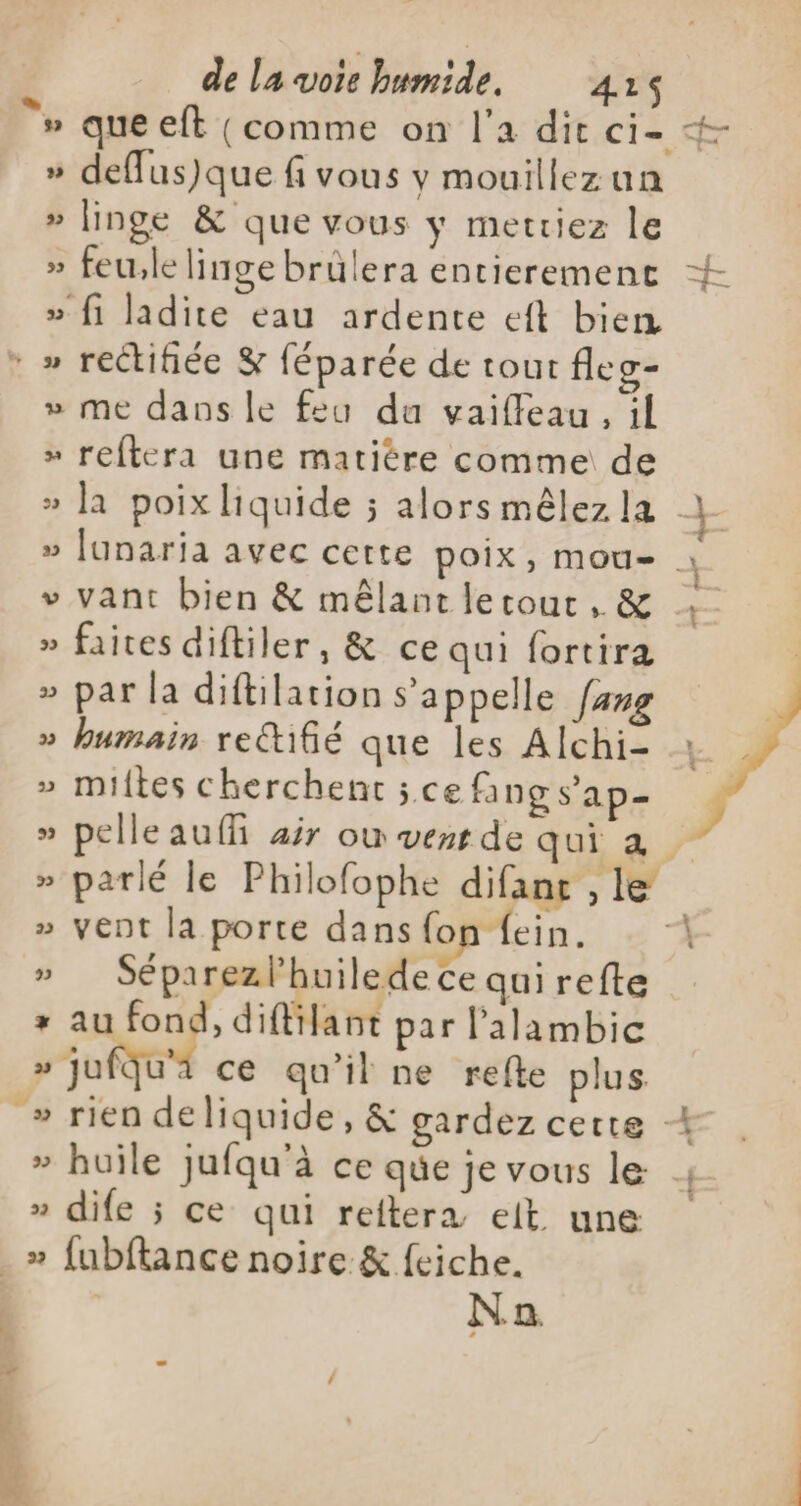 de la voie humide. 415
» que eſt (comme on l'a dit ci-
» deſſus) que ſi vous y mouillez un
» linge & que vous y mettiez le
» feu, le linge brûlera entierement
» ſi ladite eau ardente eſt bien
» rectifiée & ſéparée de tout fleg-
» me dans le feu du vaiſſeau, il
» reſtera une matière comme de
» la poix liquide ; alors mêlez la
» lunaria avec cette poix, mou-
» vant bien & mêlant le tout, &
» faites diſtiler, & ce qui ſortira
» par la diſtilation s'appelle ſang
» humain rectifié que les Alchi-
» miſtes cherchent ; ce ſang s'ap-
» pelle auſſi air ou vent de qui a
» parlé le Philoſophe diſant, le
» vent la porte dans ſon ſein.
» Séparez l'huile de ce qui reſte
» au fond, diſtilant par l'alambic
» juſqu'à ce qu'il ne reſte plus
» rien de liquide, & gardez cette
» huile juſqu'à ce que je vous le
» diſe ; ce qui reſtera eſt une
» ſubſtance noire & ſeiche.
Nn